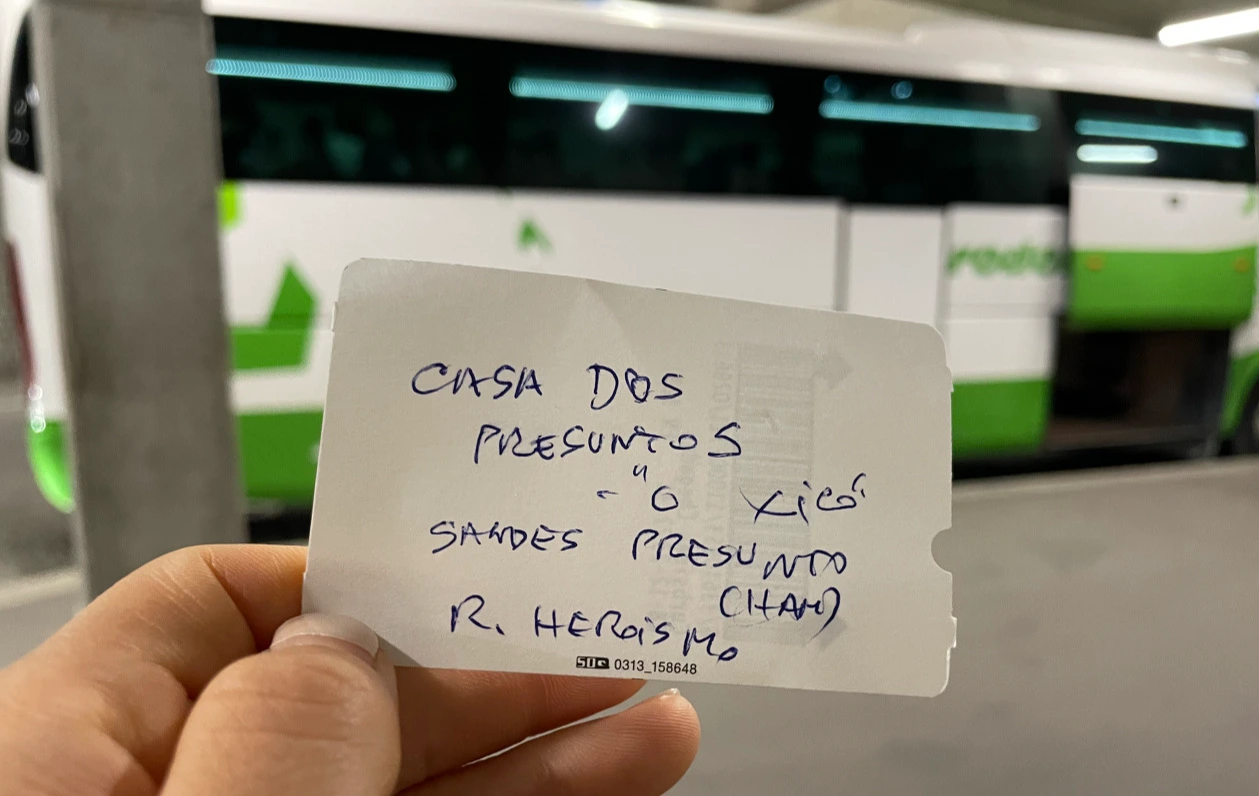 rode
CASA DOS
PRESUNTOS
- "O XICÓ
SANDES PRESUNTO
(HAM)
R. HEROISMO
0313_158648